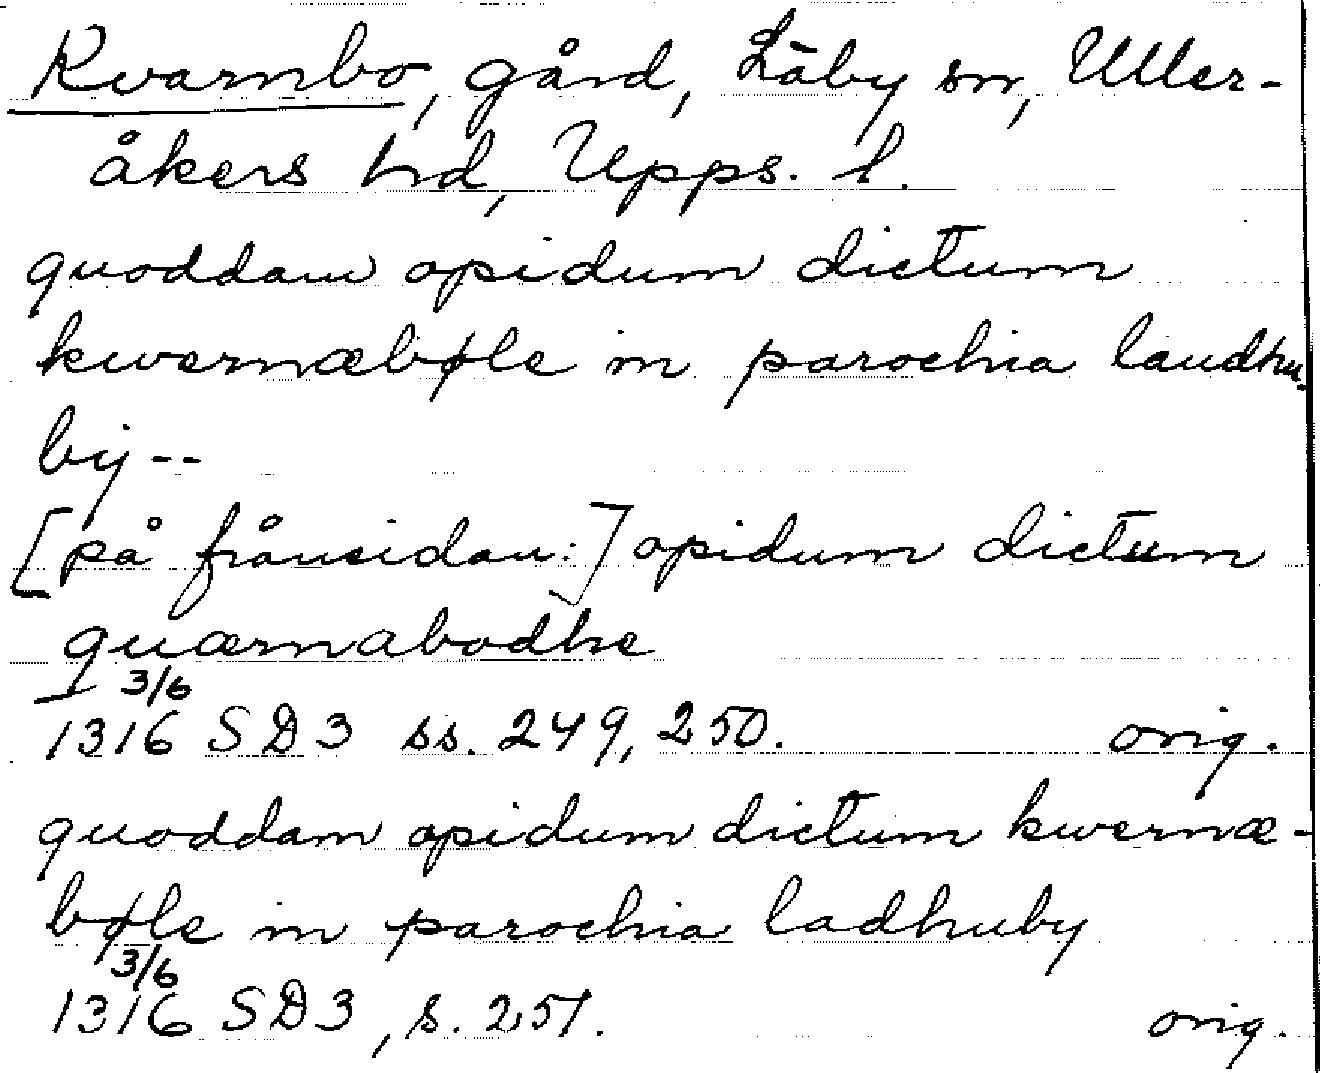 Kvarnbo, gård, Läby sn, Uller-
åkers hd, Upps. l.
quoddam opidum dictum
kwernæbøle in parochia laudhu-
bÿ--
[på frånsidan:] opidum dictum
quærnabodhe
3/6
1316 SD3 ss. 249, 250. orig.
quoddam opidum dictum kwernæ-
bøle in parochia ladhuby
3/6
1316 SD3, s. 251. orig.